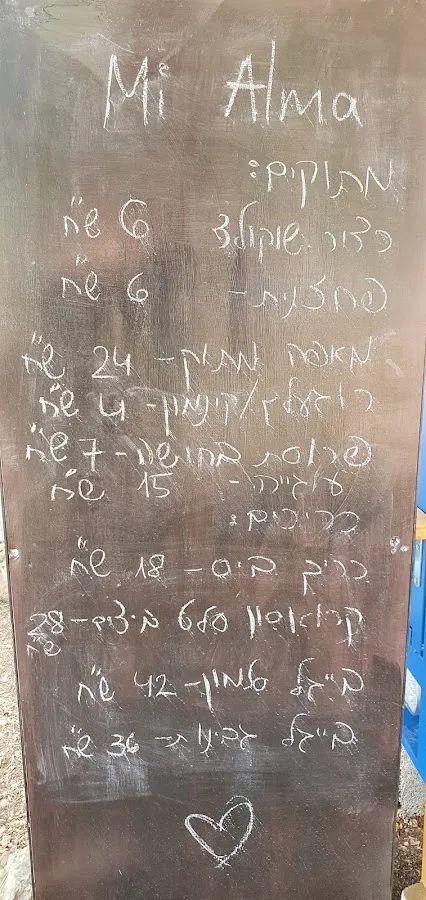 Mi Alma
מתוקים:
כדור שוקולד 6 ש"ח
פחזנית - 6 ש"ח
מאפה מתוק - 24 ש"ח
רוגעלך/קינמון - 4 ש"ח
פרוסת בחושה - 7 ש"ח
עוגייה - 15 ש"ח
כריכים:
כריך ביס - 18 ש"ח
קרואסון סלט ביצים - 28 ש"ח
בייגל סלמון - 42 ש"ח
בייגל גבינות - 36 ש"ח